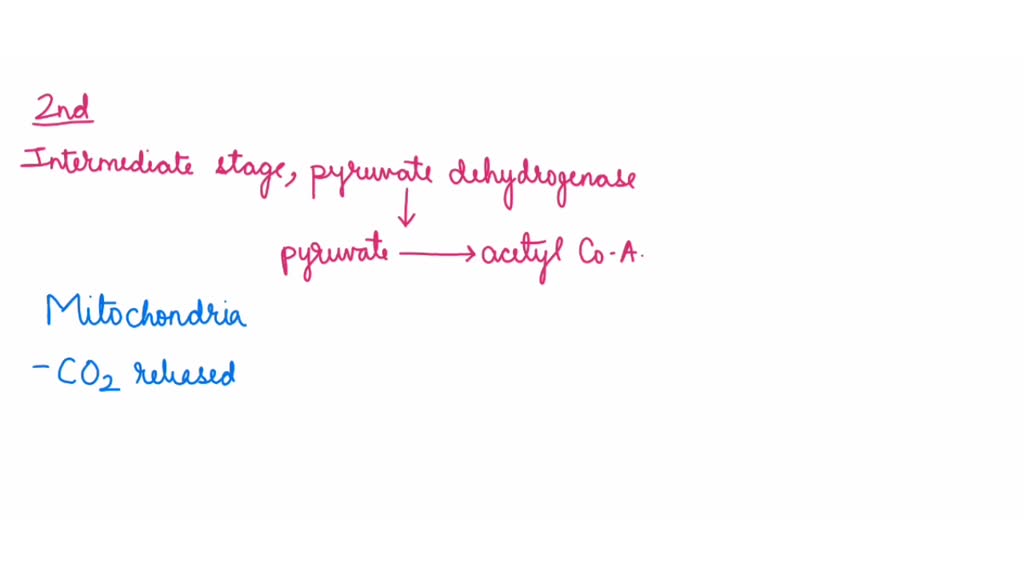 2nd
Intermediate stage, pyruvate dehydrogenase
pyruvate → acetyl Co-A.
Mitochondria
- CO2 released